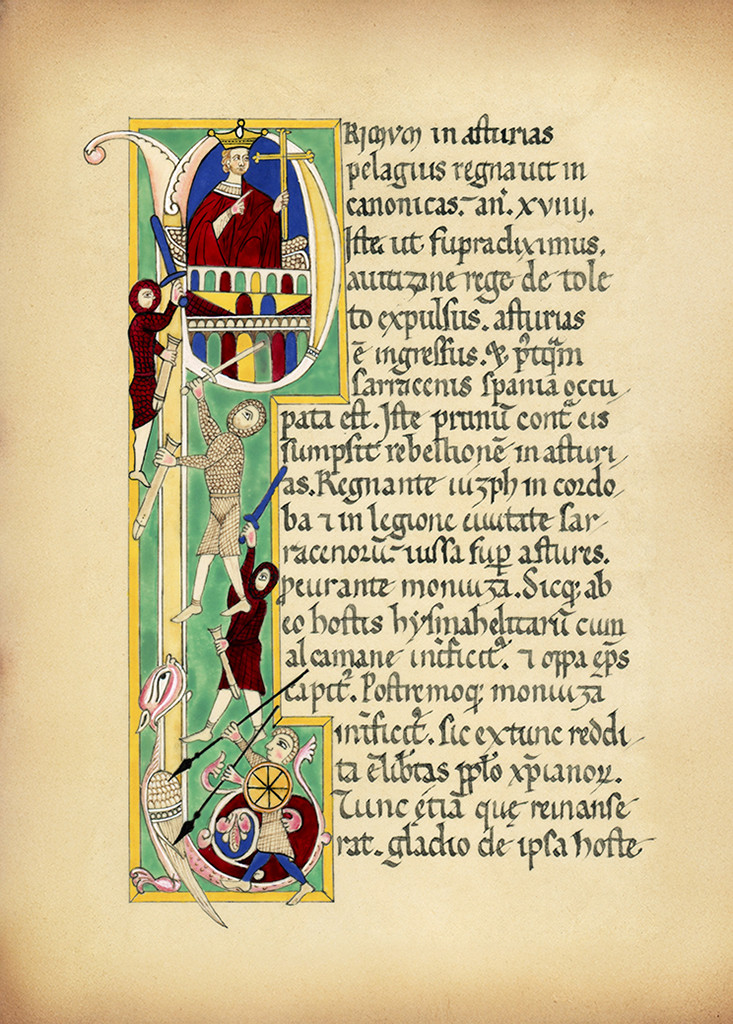 PRIMUM in asturias
pelagius regnauit in
canonicas. an. xviiij.
Iste ut supradiximus.
a rege de tole
to expulsus. asturias
ē ingressus. & ptqm
Sarracenis spania occu
pata est. Iste primū cont eis
sumpsit rebellionē in asturi
as. Regnante iuzph in cordo
ba ⁊ in legione ciuitate sar
racenorū iussa sup astures.
 monuuza. Sicq; ab
eo hostis hysmahelitarū cum
alcamane int̄ficit. ⁊ oppa ep̄s
capit. Postremoq; monuuza
int̄ficit. Sic extunc reddi
ta ē libtas pplo xpianor.
Tunc etiā quę remanse
rat. gladio de ipsa hoste